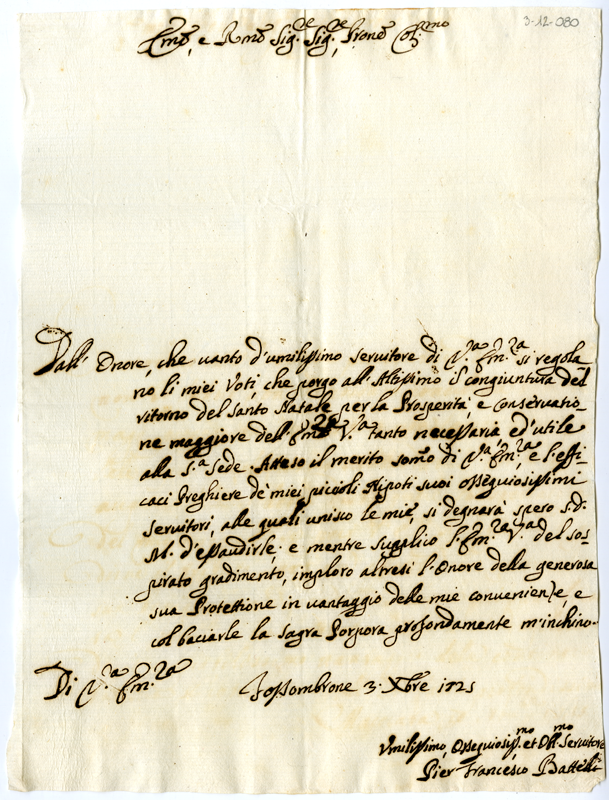 3-12-080
Em̃o, e Rmõ Sig.re Sig.re, Prone Col.mo
Dall' Onore, che vanto d'umilissimo servitore di V.ra Em.za si regola
no li miei Voti, che porgo all' Altissimo i' congiuntura del
ritorno del Santo Natale per la Prosperità, e conservatio-
ne maggiore dell' Em.za V.ra tanto necessaria, ed' utile
alla S.a Sede. Atteso il merito som̃o di V.ra Em.za, e l'effi-
caci Preghiere de' miei piccioli Nipoti suoi ossequiosissimi
servitori, alle quali unisco le mie, si degnarà spero S.D.
M. d'essaudirle; e mentre supplico l'Em.za V.ra del sos-
pirato gradimento, imploro altresì l'Onore della generosa
sua Protettione in vantaggio delle mie convenienze, e
col baciarle la sagra Porpora profondamente m'inchino.
Di V.ra Em.za
Fossombrone 3. Xbre 1725
Umilissimo, Ossequiosis.mo et Obl.mo Servitore
Pier Francesco Battelli